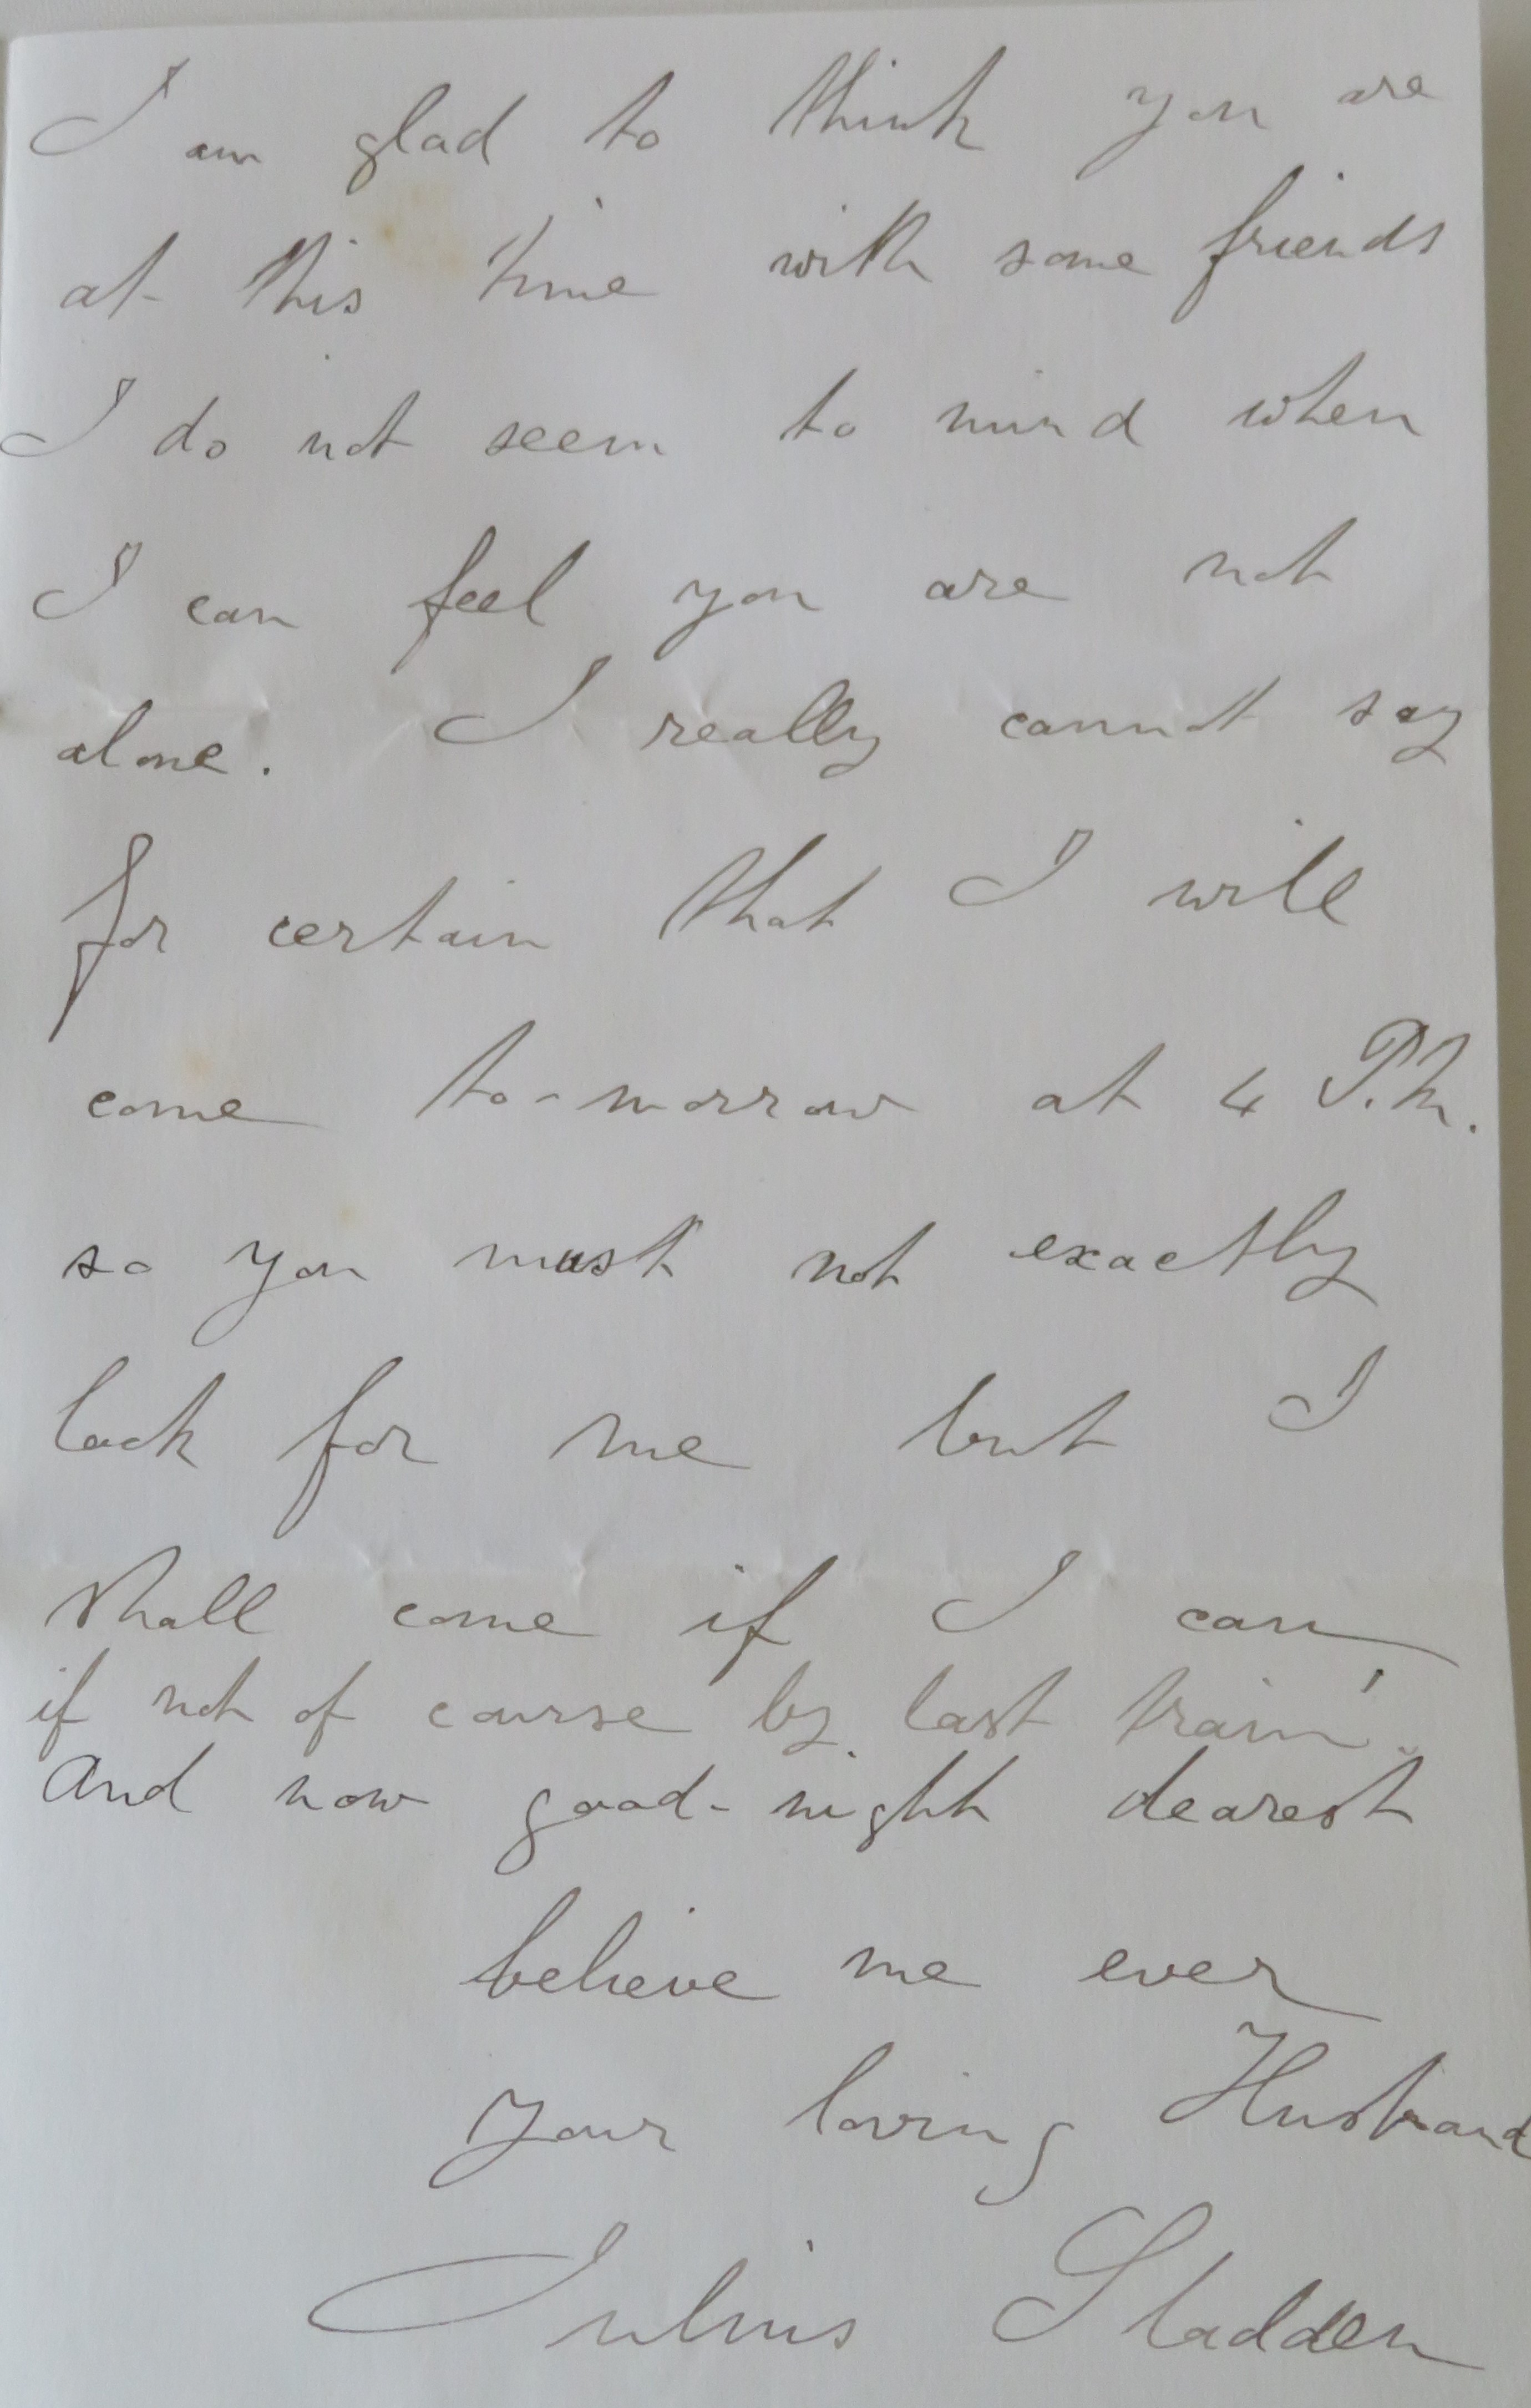 I am glad to think you are
at this time with some friends
I do not seem to mind when
I can feel you are not
alone. I really cannot say
for certain that I will
come to-morrow at 4 P.M.
so you must not exactly
look for me but I
shall come if I can,
if not of course by last train.
And now good-night dearest
believe me ever
your loving Husband
Julius Sladden